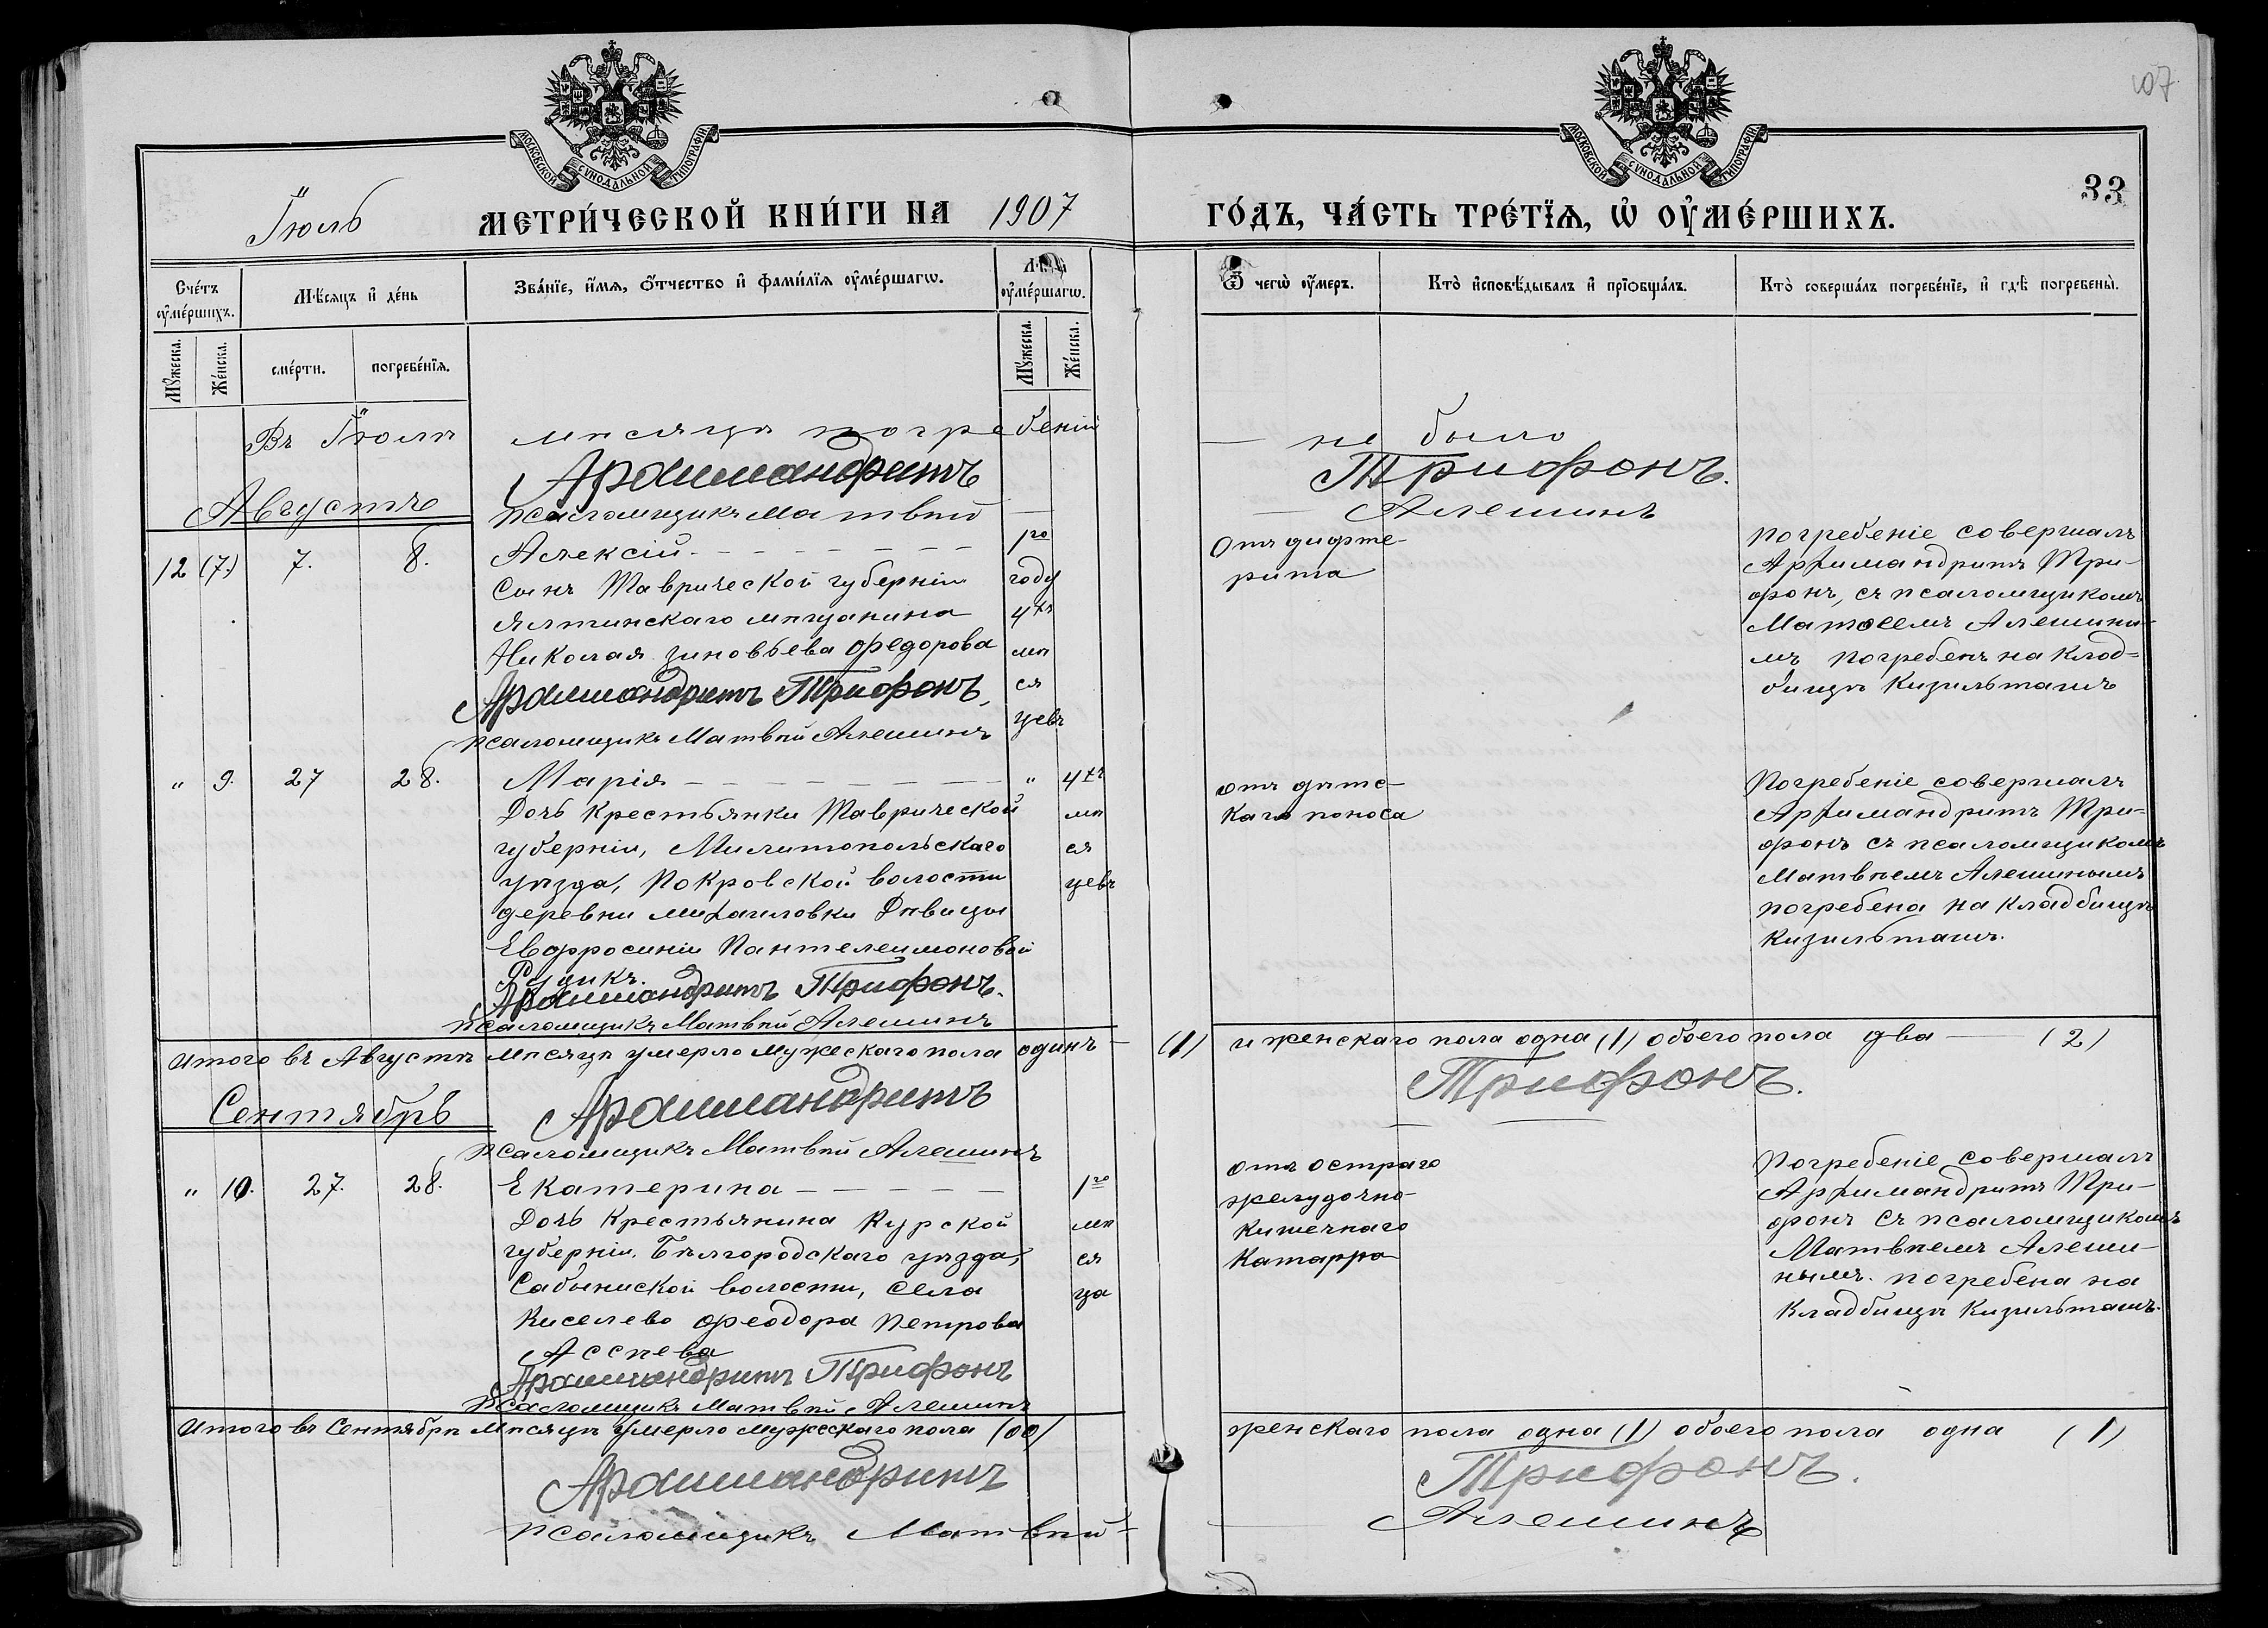 107
МОСКОВСКОЙ СѴНОДАЛЬНОЙ ТИПОГРАФІИ
МОСКОВСКОЙ СѴНОДАЛЬНОЙ ТИПОГРАФІИ
33
Іюль МЕТРИ́ЧЕСКОЙ КНИ́ГИ НА 1907 ГО́ДЪ, ЧА́СТЬ ТРЕ́ТЇѦ, Ѡ҆ ОУ҆МЕ́РШИХЪ.
Сче́тъ оу҆ме́ршихъ.
Мѣ́сяцъ и҆ де́нь
Зва́нїе, и҆́мѧ, ѻ҆́тчество и҆ фами́лїѧ оу҆ме́ршагѡ.
Лѣ́та оу҆ме́ршагѡ.
Ѿ чегѡ̀ оу҆́меръ.
Кто̀ и҆сповѣ́дывалъ и҆ прїѻбща́лъ.
Кто̀ соверша́лъ погребе́нїе, и҆ гдѣ̀ погребены̀.
Мꙋ́жеска.
Же́нска.
сме́рти.
погребе́нїѧ.
Мꙋ́жеска.
Же́нска.
Въ Іюлѣ мѣсяцѣ погребеній — не было
Архимандритъ Трифонъ.
Августъ
Псаломщикъ Матвѣй — Алешинъ
12 (7.) 7. 8. Алексій - - - - - 1го
Сынъ Таврической губерніи году
Ялтинскаго мѣщанина 4хъ
Николая Зиновьева Федорова мѣ
Архимандритъ Трифонъ, ся
Псаломщикъ Матвѣй Алешинъ цевъ
Отъ дифте-
рита
Погребеніе совершалъ
Архимандритъ Три-
фонъ, съ псаломщикомъ
Матѳеемъ Алешины-
мъ погребенъ на клад=
бищѣ Кизильташъ
" 9. 27 28. Марія - - - - - " 4хъ
Дочь крестьянки Таврической мѣ
губерніи, Милитопольскаго ся
уѣзда, Покровской волости цевъ
деревни Михаиловки Дѣвицы
Евфросиніи Пантелеимоновой
Рудикъ.
Архимандритъ Трифонъ.
Псаломщикъ Матвѣй Алешинъ
отъ дѣтс-
каго поноса
Погребеніе совершалъ
Архимандритъ Три=
фонъ съ псаломщикомъ
Матвѣемъ Алешинымъ
погребена на кладбищѣ
Кизильташъ.
Итого въ Августѣ мѣсяцѣ умерло мужескаго пола одинъ — (1) и женскаго пола одна (1) обоего пола два — (2)
Архимандритъ Трифонъ.
Сентябрь
Псаломщикъ Матвѣй Алешинъ
" 10. 27. 28. Екатерина - - - - - 1го
Дочь крестьянина Курской мѣ
губерніи. Бѣлгородскаго уѣзда, ся
Сабыниской волости, Села ца
Киселево Феодора Петрова
Ассѣева
Архимандритъ Трифонъ
Псаломщикъ Матвѣй Алешинъ
отъ остраго
желудочно-
кишечнаго
катарра
Погребеніе совершалъ
Архимандритъ Три-
фонъ съ псаломщикомъ
Матвѣемъ Алеши-
нымъ. погребена на
кладбищѣ Кизильташъ.
Итого въ Сентябрѣ мѣсяцѣ умерло мужескаго пола (00) женскаго пола одна (1) обоего пола одна (1)
Архимандритъ Трифонъ.
Псаломщикъ Матвѣй — Алешинъ